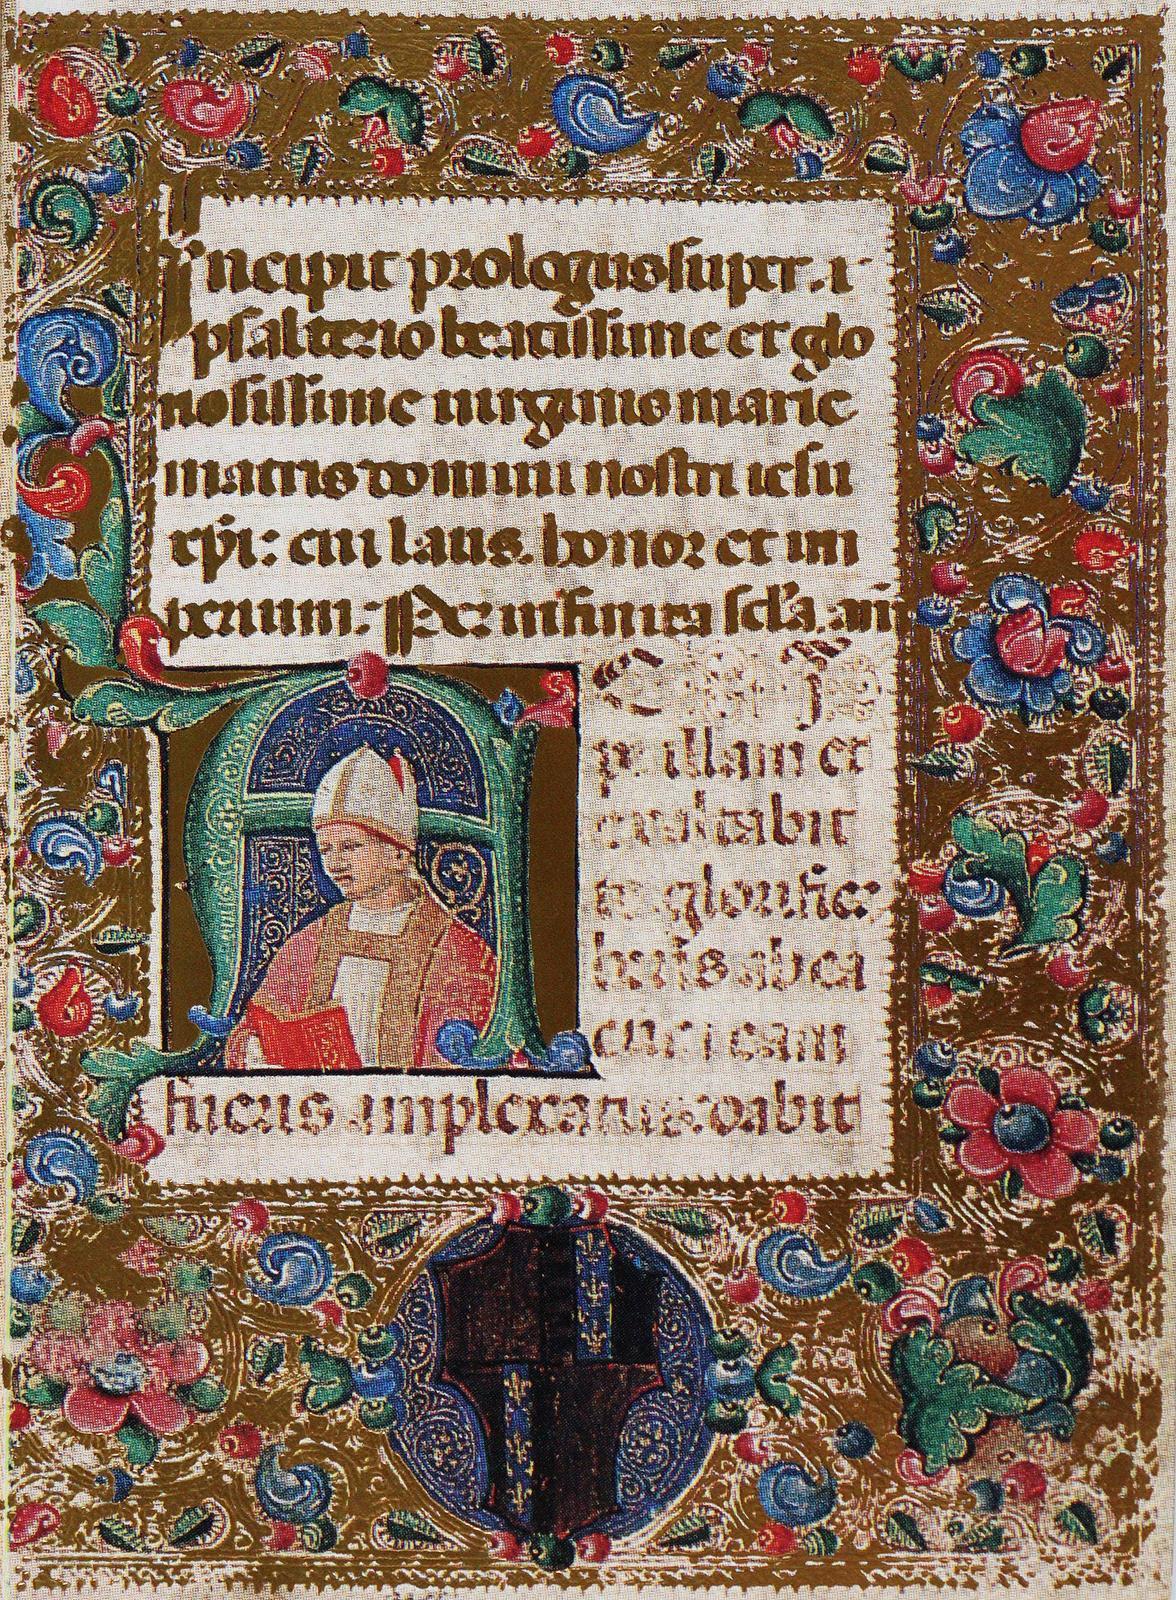 Incipit prologus super. i
psalterio beatissime et glo
riosissime uirginis marie
matris domini nostri iesu
xp̄i: cui laus. honor et im
perium: Ex infinita sc̄la. am̄
p illam et
exaltabit
te glorific:
beris ab ea
cū ei eam
fueris amplexatus: dabit